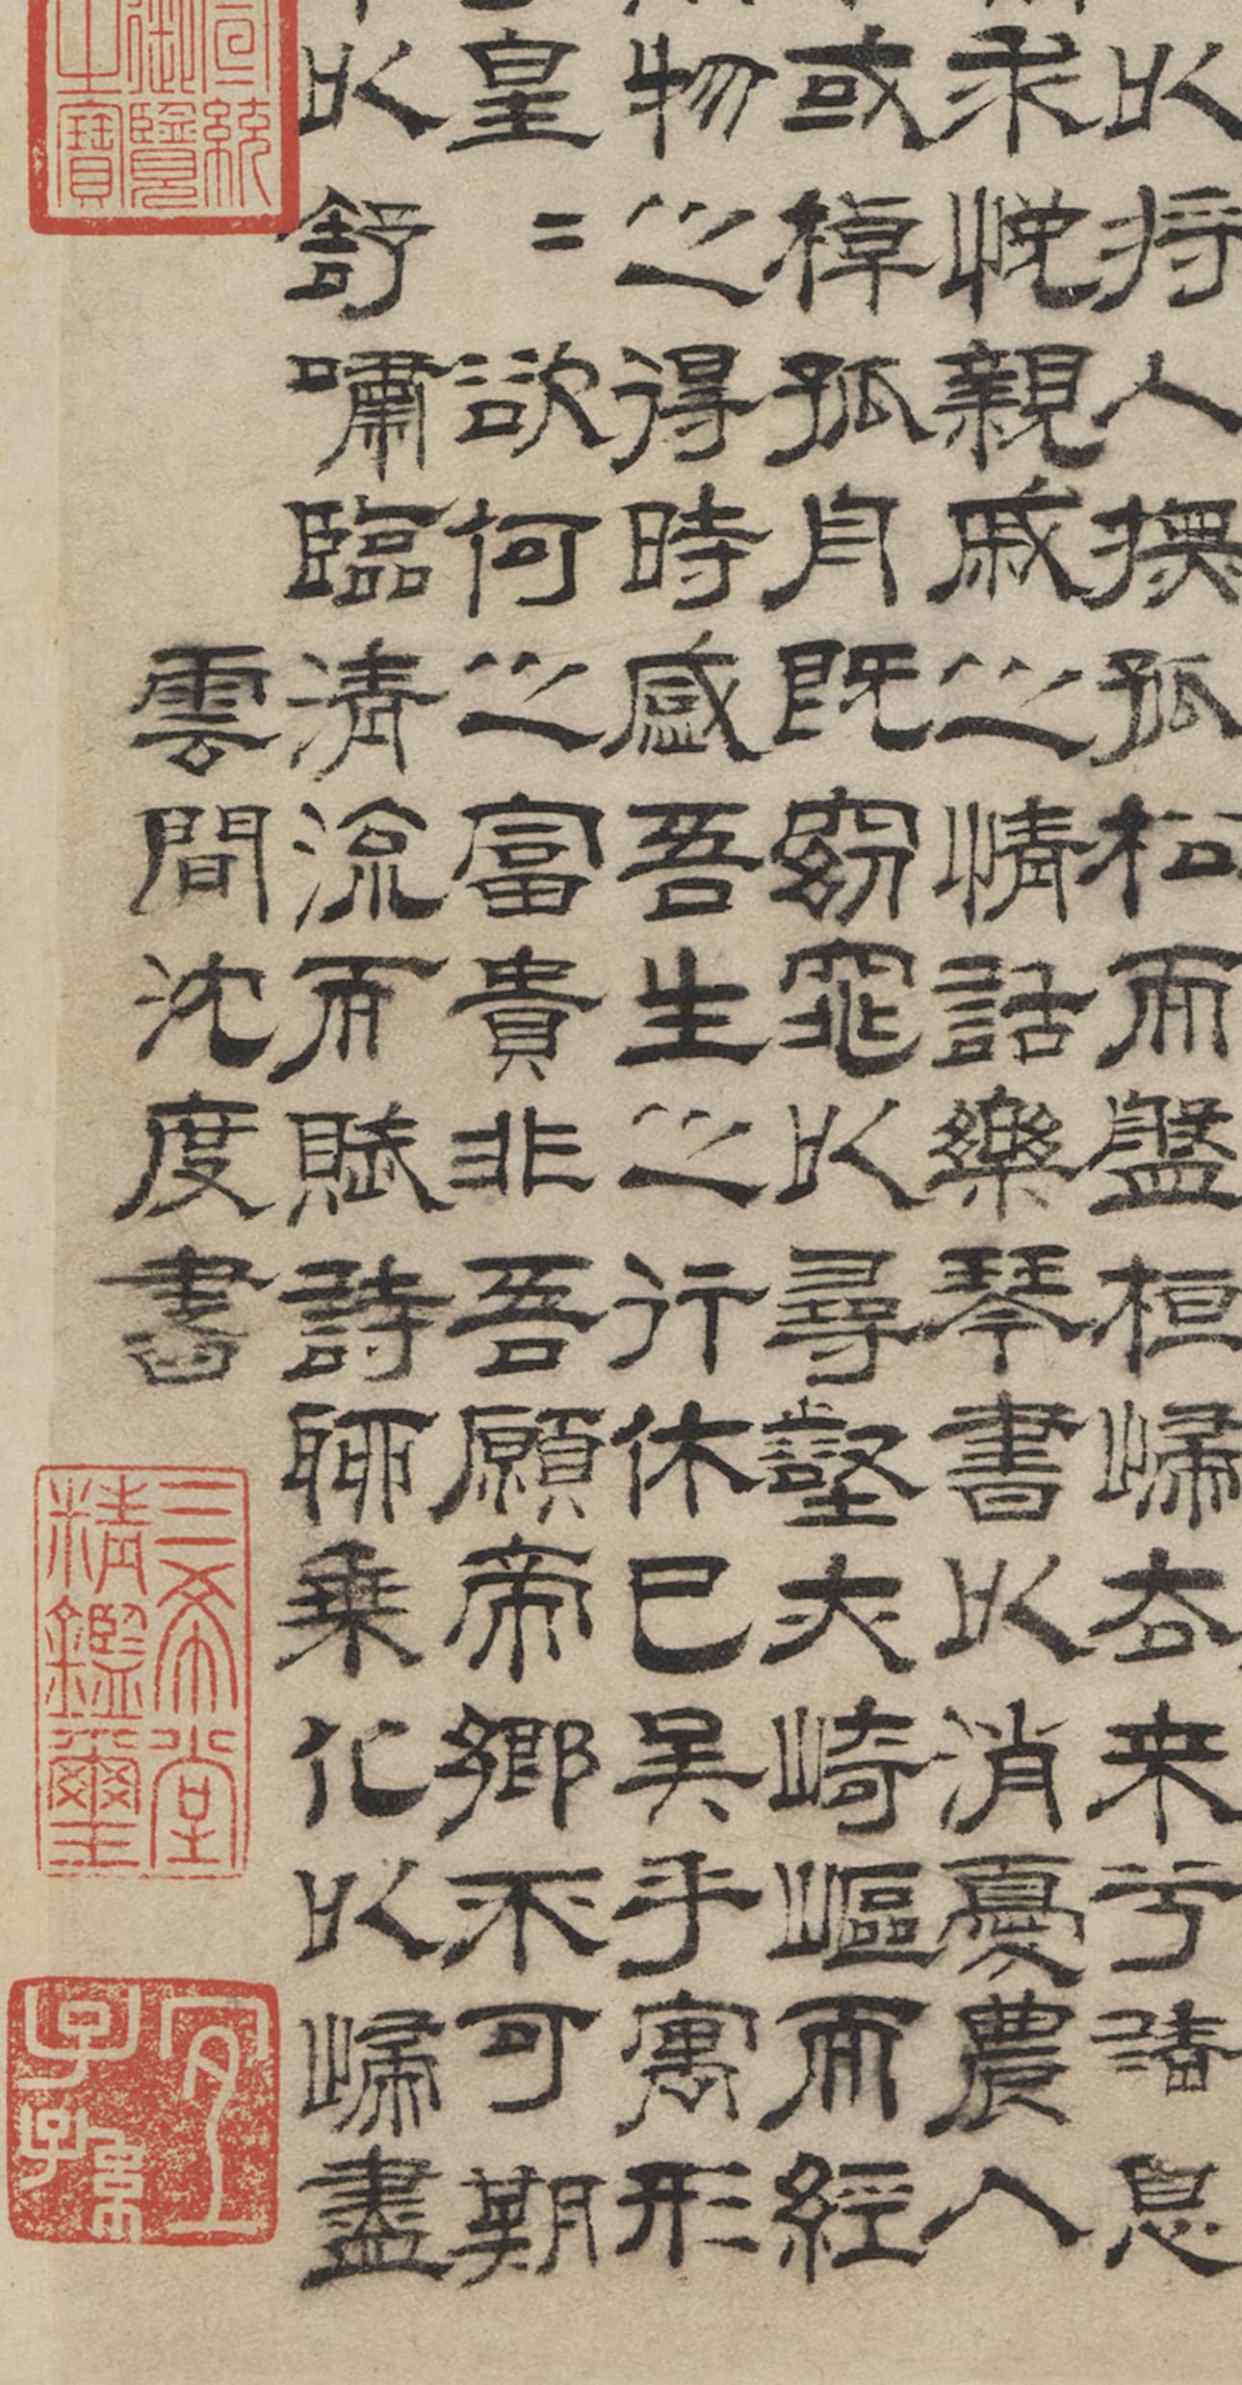 以將入撫孤松而盤桓歸去来兮請息
求悅親戚之情話樂琴書以消憂農人
或棹孤舟既窈窕以尋壑夾崎嶇而經
物之得時感吾生之行休已矣乎寓形
皇〻欲何之富貴非吾願帝鄉不可期
以舒嘯臨清流而賦詩聊乗化以歸盡
雲間沈度書
御覽之寶
三希堂精鑑璽
宜子孫